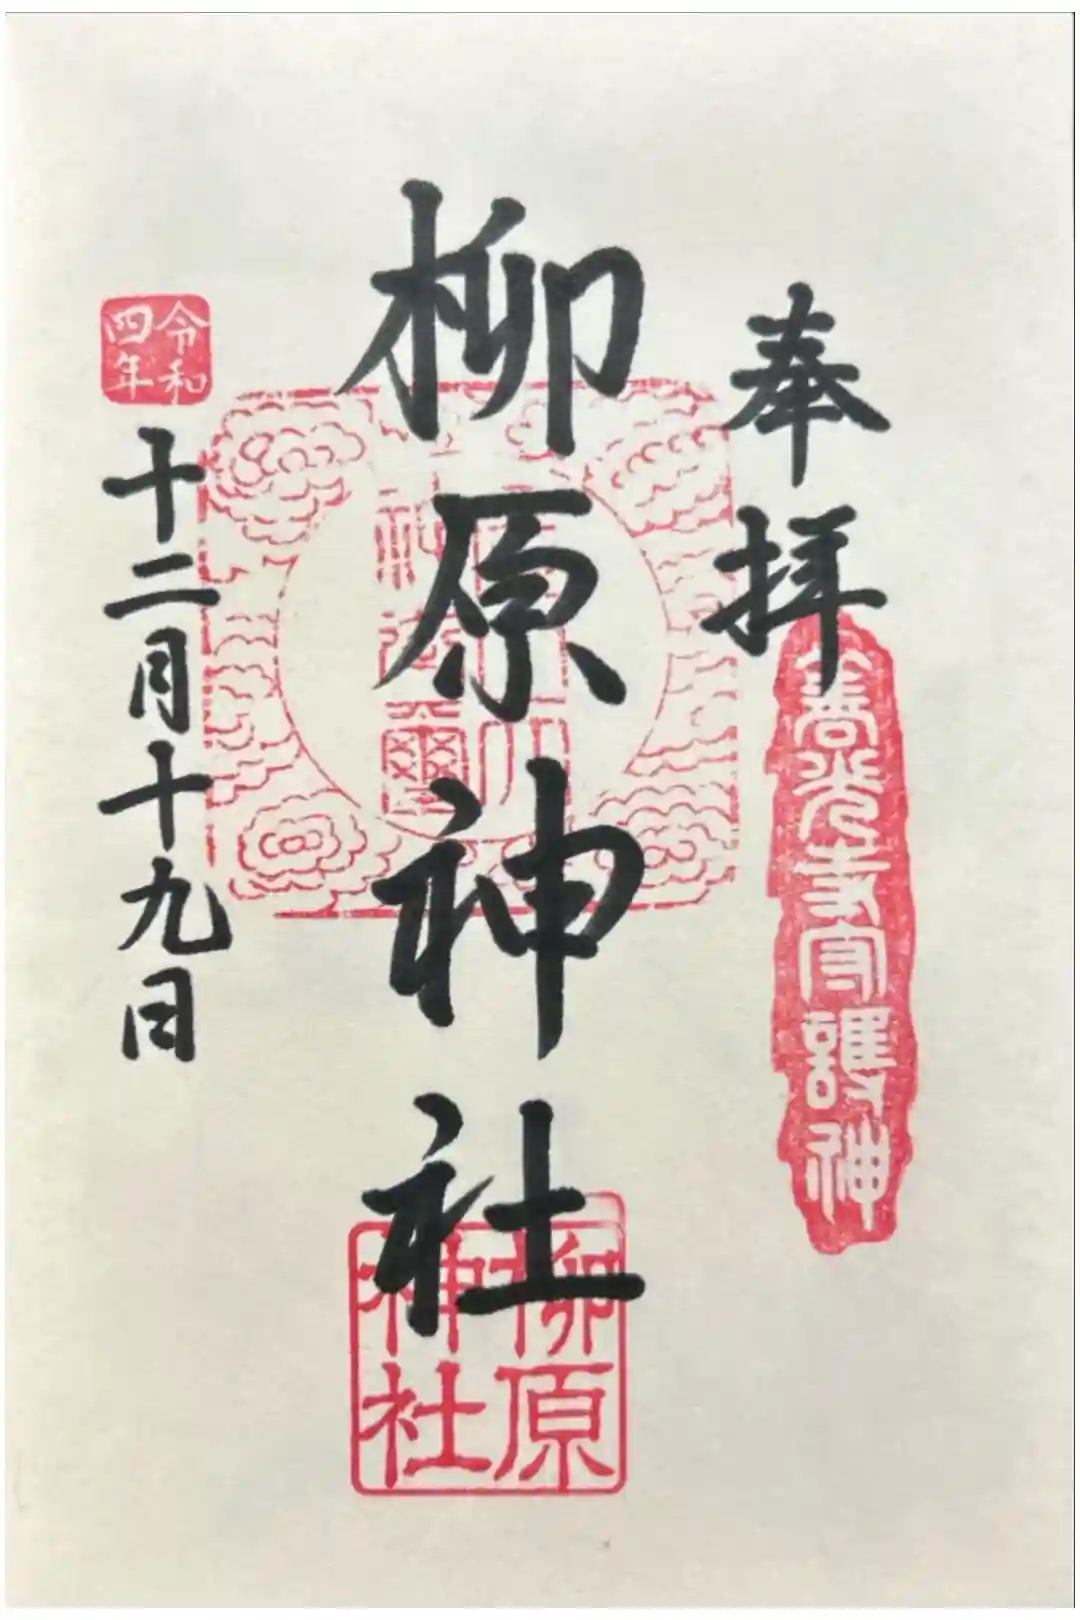 奉拝
善光寺守護神
柳原神社
柳原
神社
令和
四年
十二月十九日